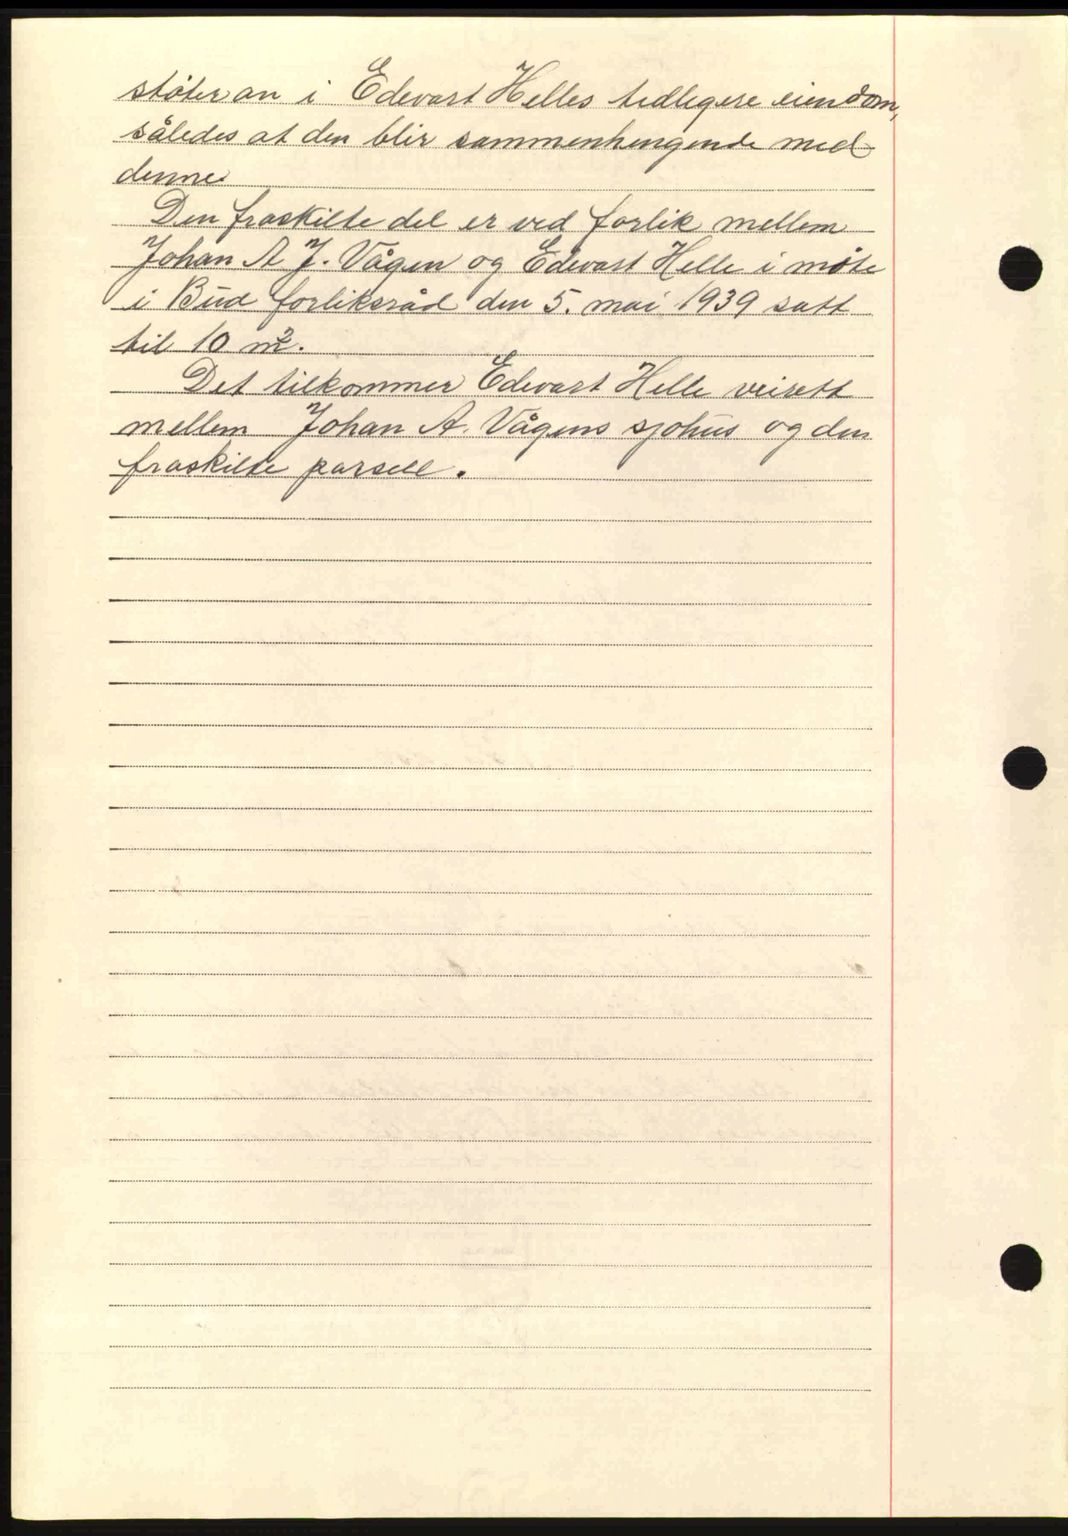 støter an i Edevart Helles tidligere eiendom,
således at den blir sammenhengende med
denne.
Den fraskilte del er ved forlik mellem
Johan A J. Vågen og Edevart Helle i møte
i Bud forliksråd den 5. mai 1939 satt
til 10 m².
Det tilkommer Edevart Helle veirett
mellem Johan A. Vågens sjøhus og den
fraskilte parsell.